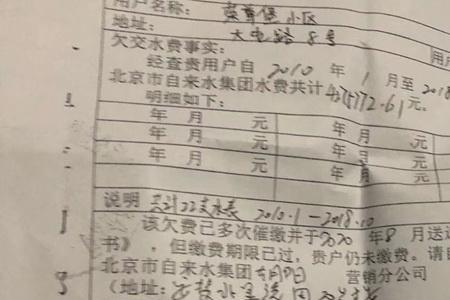 用户名称： 荣尊堡小区
地址： 大屯路8号
欠交水费事实： 用户
经查贵用户自 2010 年 1 月至 2018
北京市自来水集团水费共计 元。
明细如下：
年 月 元 年 月 元
年 月 元 年 月 元
年 月 元 年 月 元
说明 共计22支水表 2010.1—2018.10
该欠费已多次催缴并于2020 年 8 月送达
书》，但缴费期限已过，贵户仍未缴费。请
北京市自来水集团 营销分公司
（地址：